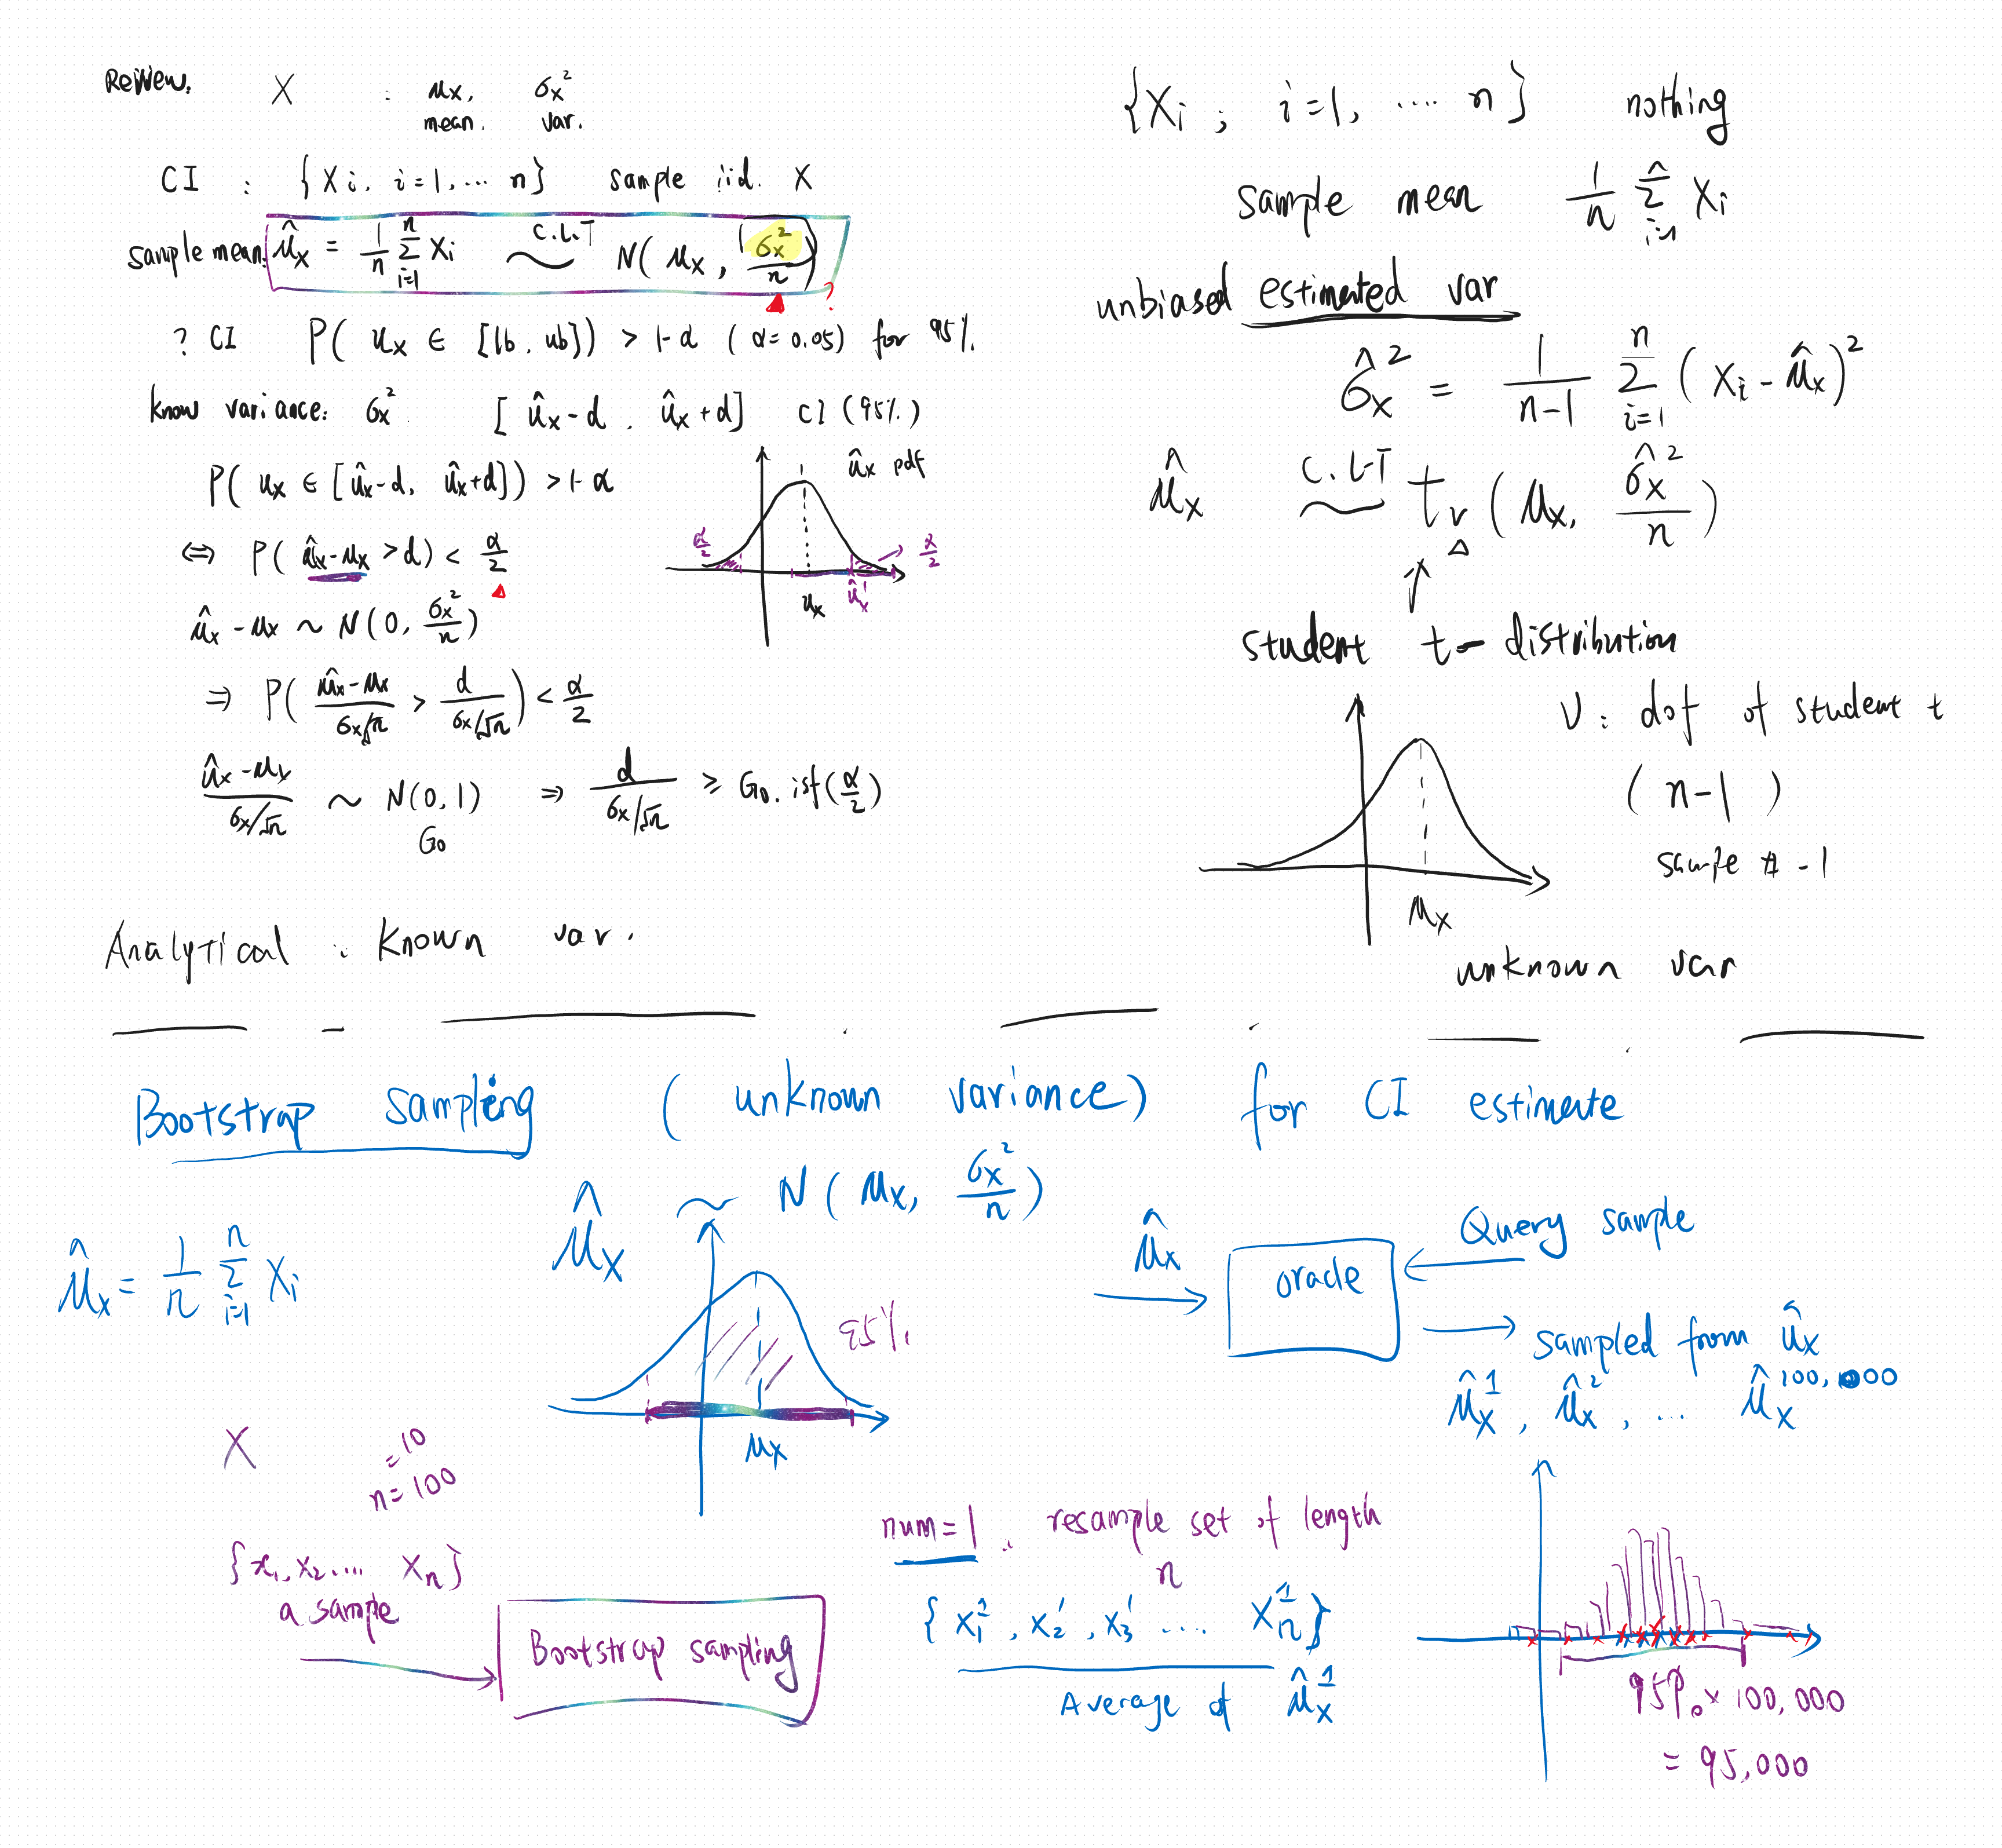 Review. X : μx, σx²
mean. var.
CI : {Xi, i=1,... n} sample iid. X
sample mean: μ̂x = 1/n Σ_{i=1}^{n} Xi ~ C.L.T N( μx , σx²/n ) ?
? CI P( μx ∈ [lb, ub]) > 1-α (α=0.05) for 95%
know variance: σx² [ μ̂x-d , μ̂x+d] CI (95%)
P( μx ∈ [μ̂x-d, μ̂x+d]) > 1-α
⇔ P( μ̂x-μx >d) < α/2
μ̂x - μx ~ N(0, σx²/n)
⇒ P( (μ̂x-μx)/(σx/√n) > d/(σx/√n) ) < α/2
(μ̂x-μx)/(σx/√n) ~ N(0,1) ⇒ d/(σx/√n) ≥ G0.isf(α/2)
G0
μ̂x pdf
α/2 α/2
μx μ̂x'
Analytical : Known var.
{Xi ; i=1, .... n} nothing
sample mean 1/n Σ_{i=1}^{n} Xi
unbiased estimated var
σ̂x² = 1/(n-1) Σ_{i=1}^{n} ( Xi - μ̂x)²
μ̂x ~ C.L.T tν ( μx, σ̂x²/n )
student t- distribution
ν : dof of student t
( n-1 )
sample # -1
μx
unknown var
Bootstrap sampling ( unknown variance) for CI estimate
μ̂x ~ N ( μx, σx²/n )
μ̂x = 1/n Σ_{i=1}^{n} Xi
95%
μx
μ̂x oracle Query sample
sampled from μ̂x
μ̂x¹, μ̂x², ... μ̂x^100,000
X =10
n=100
{x1, x2.... xn}
a sample
Bootstrap sampling
num=1 : resample set of length
n
{ x1¹, x2¹, x3¹ .... xn¹}
Average of μ̂x¹
95% × 100,000
= 95,000